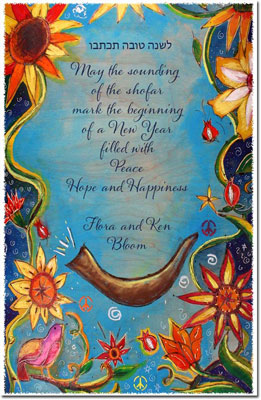 לשנה טובה תכתבו
May the sounding
of the shofar
mark the beginning
of a New Year
filled with
Peace
Hope and Happiness
Flora and Ken
Bloom